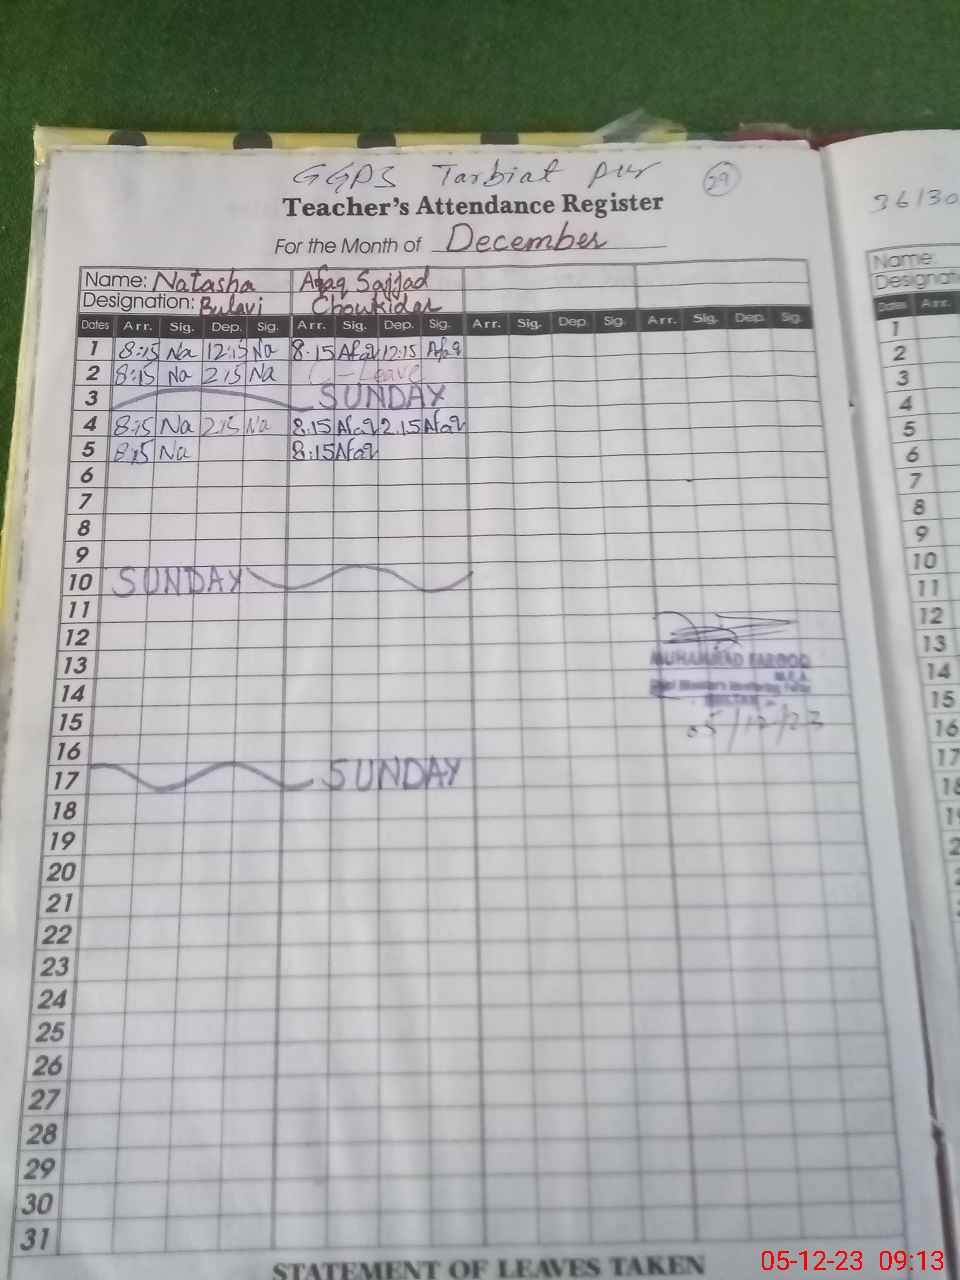 GGPS Tarbiat pur 29
Teacher's Attendance Register
For the Month of December
36/30
Name: Natasha Afaq Sajjad
Designation: Bulavi Chowkidar
Name:
Dates Arr. Sig. Dep. Sig. Arr. Sig. Dep. Sig. Arr. Sig. Dep Sig. Arr. Sig. Dep. Sig.
Dates Arr.
1 8:15 Na 12:15 Na 8:15 Afaq 12:15 Afaq
2 8:15 Na 2:15 Na C-Leave
3 SUNDAY
4 8:15 Na 2:15 Na 8:15 Afaq 2:15 Afaq
5 8:15 Na 8:15 Afaq
6
7
8
9
10 SUNDAY
11
12
13
14
15
16
17 SUNDAY
18
19
20
21
22
23
24
25
26
27
28
29
30
31
MUHAMMAD FAROOQ
M.E.A.
Chief Minister's Monitoring Force
MULTAN
05/12/23
1
2
3
4
5
6
7
8
9
10
11
12
13
14
15
16
17
18
STATEMENT OF LEAVES TAKEN
05-12-23 09:13